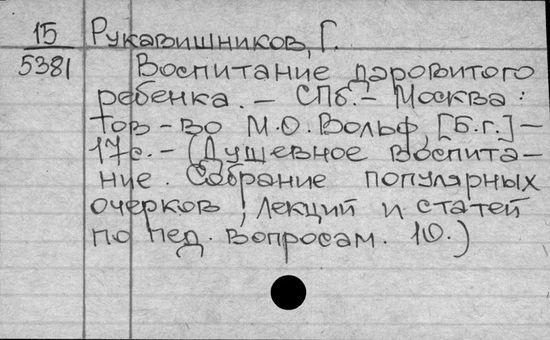 15 Рукавишников, Г.
5381 Воспитание даровитого
ребенка. – СПб. – Москва:
тов-во М.О. Вольф, [Б.г.] –
17с. – (Душевное воспита-
ние. Собрание популярных
очерков, лекций и статей
по пед. вопросам. 10.)